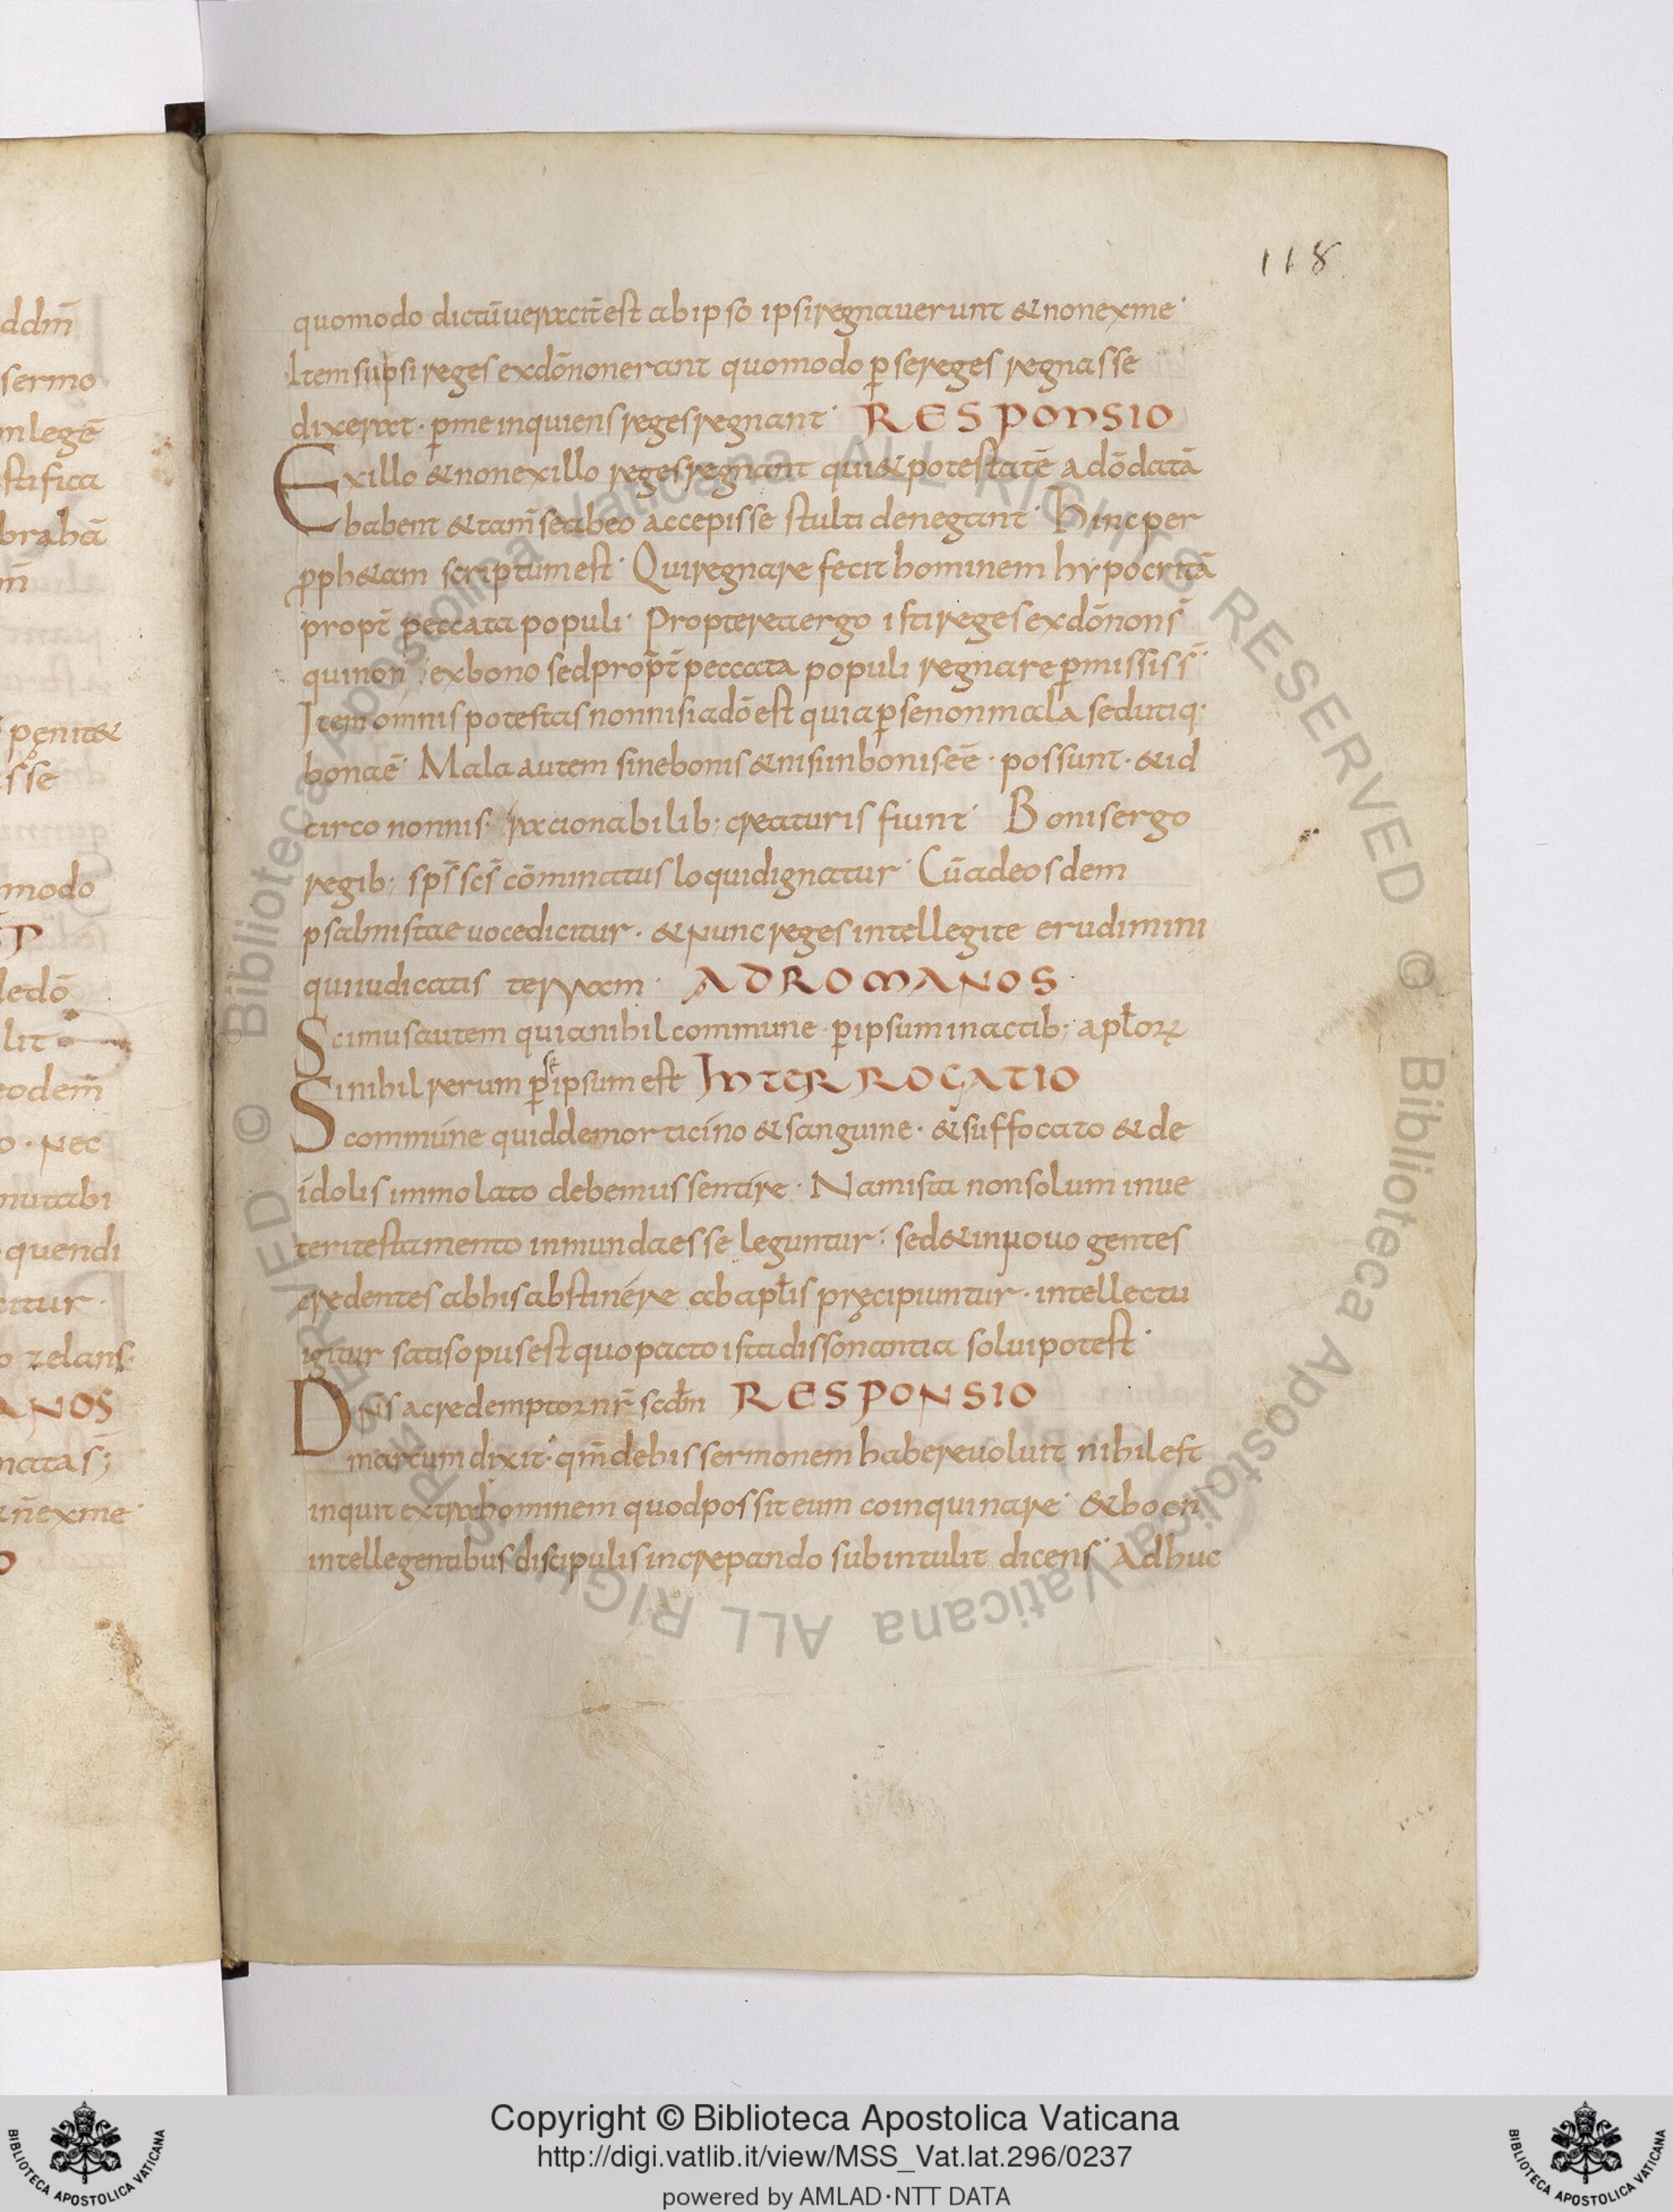 118
quomodo dictū ueracit̄ est ab ipso ipsi regnauerunt & non ex me
Item si ipsi reges ex dō non erant quomodo ꝑ se reges regnasse
dixerat · ꝑ me inquiens reges regnant RESPONSIO
Ex illo & non ex illo reges regnant qui & potestatē a dō datā
habent & tam̄ se ab eo accepisse stulti denegant Hinc per
ꝓph&am scriptum est Qui regnare fecit hominem hypocritā
propt̄ peccata populi Propterea ergo isti reges ex dō non s̄
qui non ex bono sed prop̄t peccata populi regnare ꝑmissi s̄
Item omnis potestas non nisi a dō est quia ꝑ se non mala sed utiq·
bona ē Mala autem sine bonis & nisi in bonis eē · possunt · & id
circo non nisi racionabilib; creaturis fiunt Bonis ergo
regib; sp̄s sc̄s cōminatus loqui dignatur Cū ad eosdem
psalmistae uoce dicitur · & nunc reges intellegite erudimini
qui iudicatis terram · AD ROMANOS
Scimus autem quia nihil commune ꝑ ipsum in actib; apl̄oꝝ
Si nihil rerum ꝑ ipsum est INTERROGATIO
commune quid de morticino & sanguine · & suffocato & de
idolis immolato debemus sentire · Nam ista non solum in ue
teri testamento inmunda esse leguntur · sed & in nouo gentes
credentes ab his abstinére ab apl̄is pręcipiuntur · intellectu
igitur satis opus est quo pacto ista dissonantia solui potest
Dn̄s ac redemptor nr̄ scdm̄ RESPONSIO
marcum dixit · qm̄ de his sermonem habere uoluit nihil est
inquit extra hominem quod possit eum coinquinare & hoc n̄
intellegentibus discipulis increpando subintulit dicens Adhuc
ddm̄
sermo
m legē
stifica
brahā
pęnit&
sse
modo
ledō
lit
eodem̄
o · nec
mutabi
quendi
citur
o zelans
ANOS
natas;
ex me
© Biblioteca Apostolica Vaticana ALL RIGHTS RESERVED
© Biblioteca Apostolica Vaticana ALL RIGHTS RESERVED
Copyright © Biblioteca Apostolica Vaticana
http://digi.vatlib.it/view/MSS_Vat.lat.296/0237
powered by AMLAD·NTT DATA
BIBLIOTECA APOSTOLICA VATICANA
BIBLIOTECA APOSTOLICA VATICANA